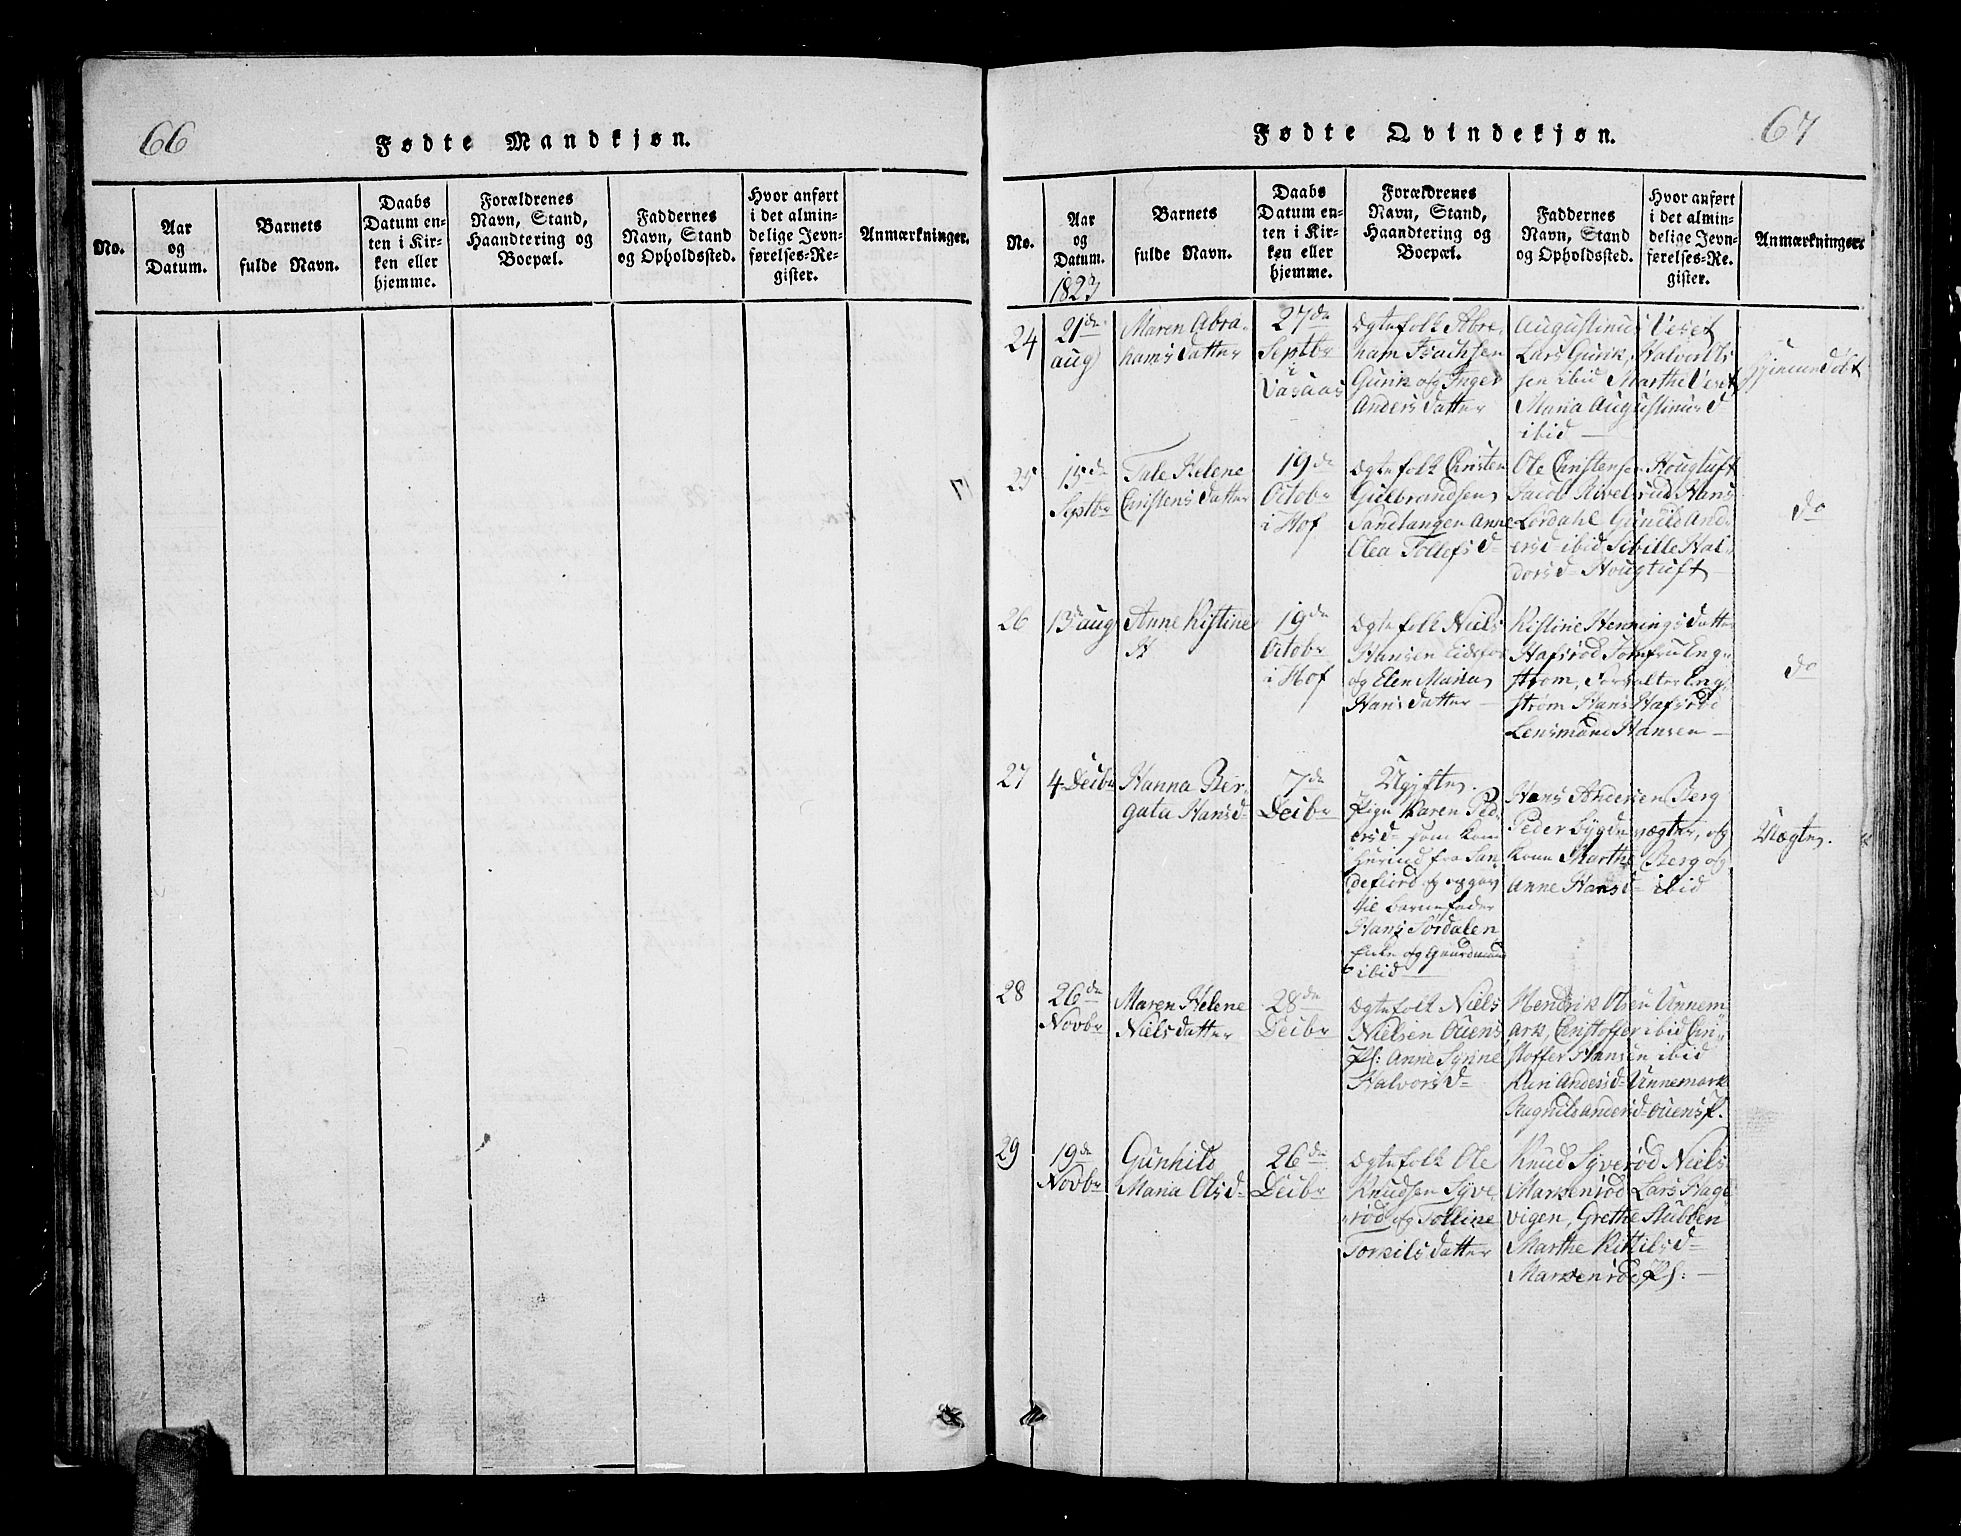 66
Fødte Mandkjøn.
No.
Aar
og
Datum.
Barnets
fulde Navn.
Daabs
Datum en-
ten i Kir-
ken eller
hjemme.
Forældrenes
Navn, Stand,
Haandtering og
Boepæl.
Faddernes
Navn, Stand
og Opholdssted.
Hvor anført
i det almin-
delige Jevn-
førelses-Re-
gister.
Anmærkninger.
Fødte Qvindekjøn.
67
No.
Aar
og
Datum.
1823
Barnets
fulde Navn.
Daabs
Datum en-
ten i Kir-
ken eller
hjemme.
Forældrenes
Navn, Stand,
Haandtering og
Boepæl.
Faddernes
Navn, Stand
og Opholdssted.
Hvor anført
i det almin-
delige Jevn-
førelses-Re-
gister.
Anmærkninger.
24
21de
aug
Maren Abra-
hams datter
27de
Septbr
i
Vasaas
Ægtefolk Abra-
ham Isachsen
Gunik og Inger
Anders datter
Augustinus Veset
Lars Gunik, Halvor
sen ibid Marthe Veset
Maria Augustinus d
ibid
25
15de
Septbr
Tale Helene
Christens datter
19de
Octobr
i Hof
Ægtefolk Christen
Gulbrandsen
Sandtangen Anne
Olea Tollefs d
Ole Christensen Hougtuft
Jacob Rivelsrud Hans
Lørdahl Gunild And-
ersd ibid Sibille Hal-
dorsd Hougtuft
do
26
13de aug
Anne Kistine
H
19de
Octobr
i Hof
Ægtefolk Niels
Hansen Eidsfos
og Elen Maria
Hans datter
Kistine Hennings datter
Hafsrød Jomfru Eng-
strøm, Forvalter Eng-
strøm Hans Hafsrød
Lensmand Hansen
do
27
4 Decbr
Hanna Ber-
gata Hansd
7de
Decbr
Ugifte
Pige Karen Ped-
ersd som kom
hurind fra San-
defiord og opgav
til barnefader
Hans Sørdalen
Enke og Gaardmand
ibid
Hans Andersen Berg
Peder Bygdevægter, og
kone Marthe Berg og
Anne Hansd ibid
Uægte
28
26de
Novbr
Maren Helene
Niels datter
28de
Decbr
Ægtefolk Niels
Nielsen Ouens
Pl: Anne Synne
Halvorsd
Hendrik Olsen Unnem-
ark, Christoffer ibid Chri-
stoffer Hansen ibid
Kari Andersd Unnemark
Ragnild Andersd Ouens P.
29
19de
Novbr
Gunhild
Maria Olsd
26de
Decbr
Ægtefolk Ole
Knudsen Syve-
rød og Tolline
Torkils datter
Knud Syverød Niels
Markenrød Lars Hage
vigen, Grethe Stubben
Marthe Kittilsd
Markenrød Pl: